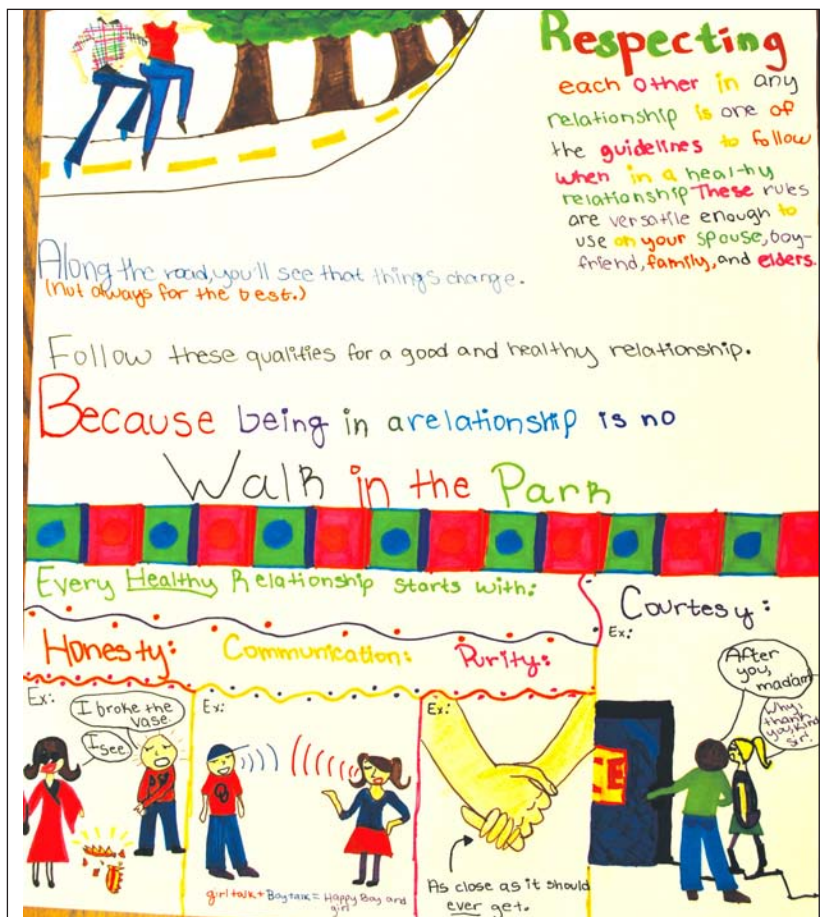 Respecting
each other in any
relationship is one of
the guidelines to follow
when in a healthy
relationship These rules
are versatile enough to
use on your spouse, boy-
friend, family, and elders.
Along the road, you'll see that things change.
(Not always for the best.)
Follow these qualities for a good and healthy relationship.
Because being in a relationship is no
Walk in the Park
Every Healthy Relationship starts with:
Honesty:
Ex:
I broke the
vase.
I see.
Communication:
Ex:
girl talk + Boy talk = Happy Boy and
girl
Purity:
Ex:
As close as it should
ever get.
Courtesy:
Ex:
After
you,
madam
Why,
thank
you, kind
sir!